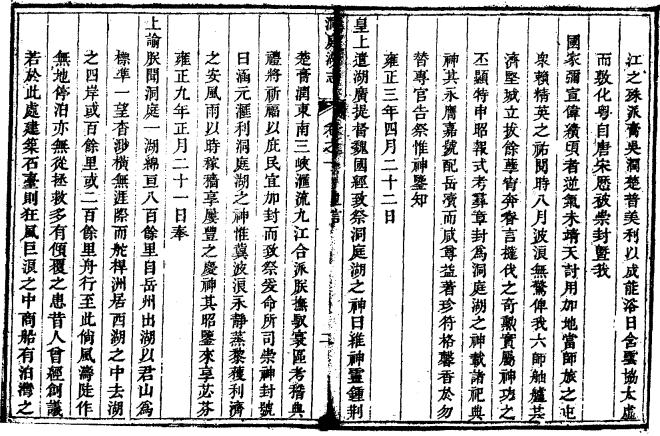 江之殊派膏吳潤楚普美利以成能浴日含靈協太虛
而敷化粵自唐宋歷被崇封暨我
國家彌宣偉績頃者逆氣未靖天討用加地當師旅之屯
衆賴精英之祐閱時八月波浪無驚俾我六師舳艫共
濟堅城立拔餘孽宵奔眷言撻伐之奇勲實屬神功之
丕顯特申昭報式考彝章封爲洞庭湖之神載諸祀典
神其永膺嘉號配岳瀆而咸尊益著珍符格馨香於勿
替專官告祭惟神鑒知
雍正三年四月二十二日
皇上遣湖廣提督魏國經致祭洞庭湖之神曰維神靈鍾荆
洞庭湖志 卷之一 皇言 二
楚膏潤東南三峽滙流九江合派朕撫馭寰區考稽典
禮將祈福以庶民宜加封而致祭爰命所司崇神封號
曰涵元滙利洞庭湖之神惟冀波浪永靜蒸黎獲利濟
之安風雨以時稼穡享屢豐之慶神其昭鑒來享苾芬
雍正九年正月二十一日奉
上諭朕聞洞庭一湖綿亘八百餘里自岳州出湖以君山爲
標準一望杳渺橫無涯際而舵桿洲居西湖之中去湖
之四岸或百餘里或二百餘里舟行至此倘風濤陡作
無地停泊亦無從拯救多有傾覆之患昔人曾經創議
若於此處建築石臺則狂風巨浪之中商船有泊灣之